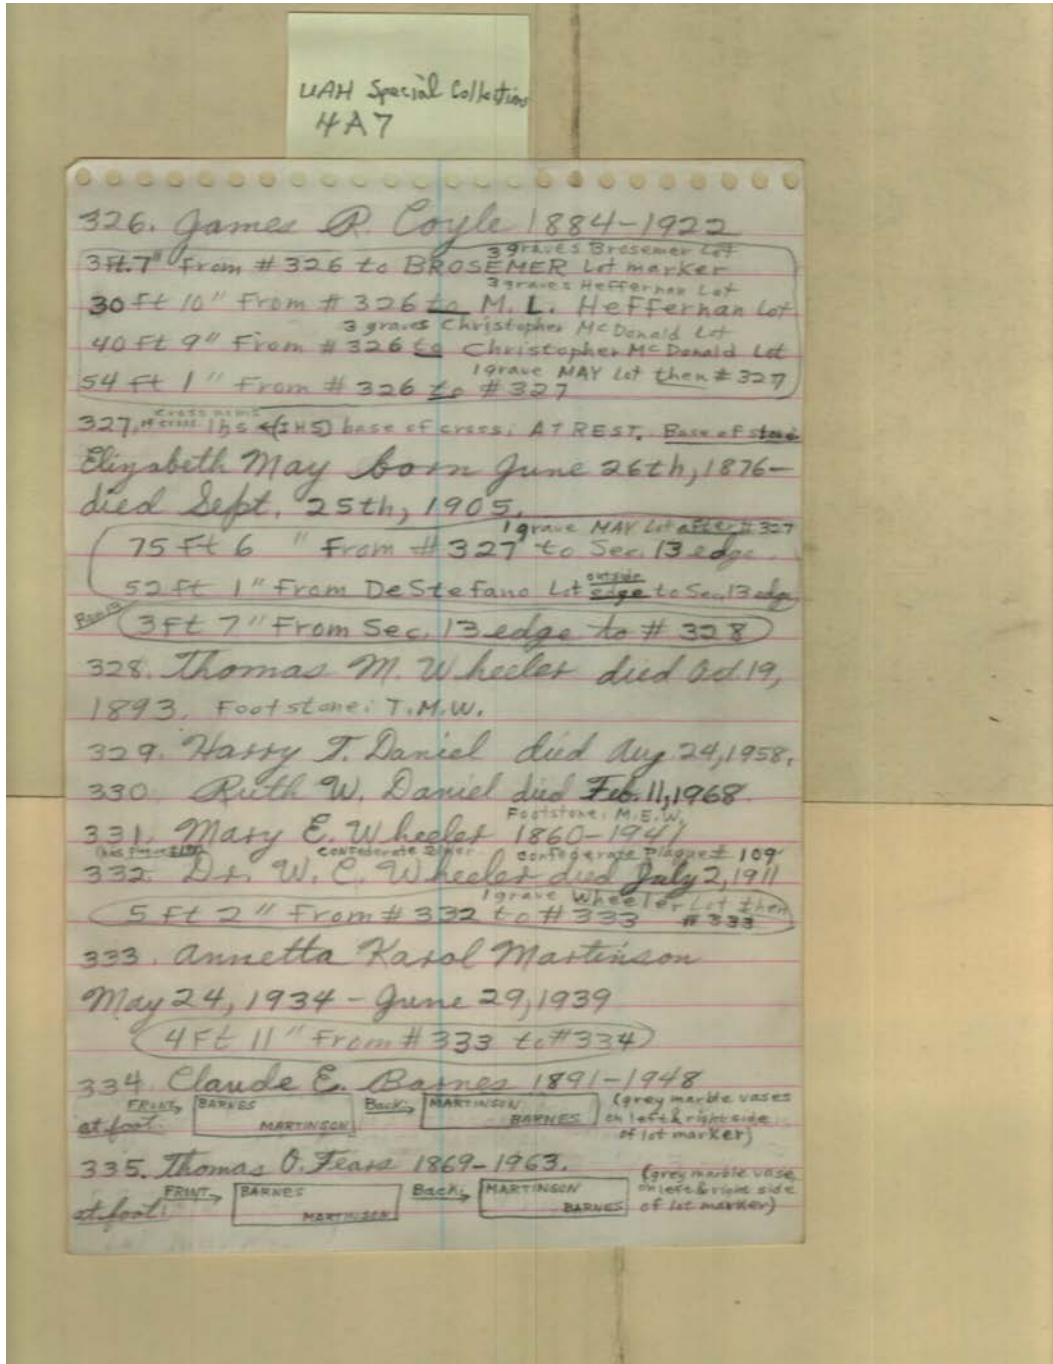 UAH Special Collections
4A7
326. James R. Coyle 1884-1922
3 graves Brosemer Lot
3 Ft. 7" From # 326 to BROSEMER Lot marker
3 graves Heffernan Lot
30 Ft 10" From # 326 to M. L. Heffernan Lot
3 graves Christopher McDonald Lot
40 Ft 9" From # 326 to Christopher McDonald Lot
1 grave MAY Lot then # 327
54 Ft 1" From # 326 to # 327
cross arms
327. of cross Ihs (IHS) base of cross: AT REST. Base of stone
Elizabeth May born June 26th, 1876-
died Sept. 25th, 1905.
1 grave MAY Lot after # 327
75 Ft 6 " From # 327 to Sec. 13 edge
outside
52 Ft 1" From DeStefano Lot edge to Sec. 13 edge
3 Ft 7" From Sec. 13 edge to # 328
328. Thomas M. Wheeler died Oct. 19,
1893. Footstone: T.M.W.
329. Harry T. Daniel died Aug. 24, 1958.
330. Ruth W. Daniel died Feb. 11, 1968.
Footstone: M.E.W.
331. Mary E. Wheeler 1860-1947
Confederate Confederate Plaque # 109
332. Dr. W. C. Wheeler died July 2, 1911
1 grave Wheeler Lot then
5 Ft 2" From # 332 to # 333 # 333
333. Annetta Karol Martinson
May 24, 1934 - June 29, 1939
4 Ft 11" From # 333 to # 334
334. Claude E. Barnes 1891-1948
at foot: FRONT BARNES MARTINSON Back: MARTINSON BARNES (grey marble vases
on left & right side
of lot marker)
335. Thomas O. Fears 1869-1963.
at foot: FRONT BARNES MARTINSON Back: MARTINSON BARNES (grey marble vase
on left & right side
of lot marker)